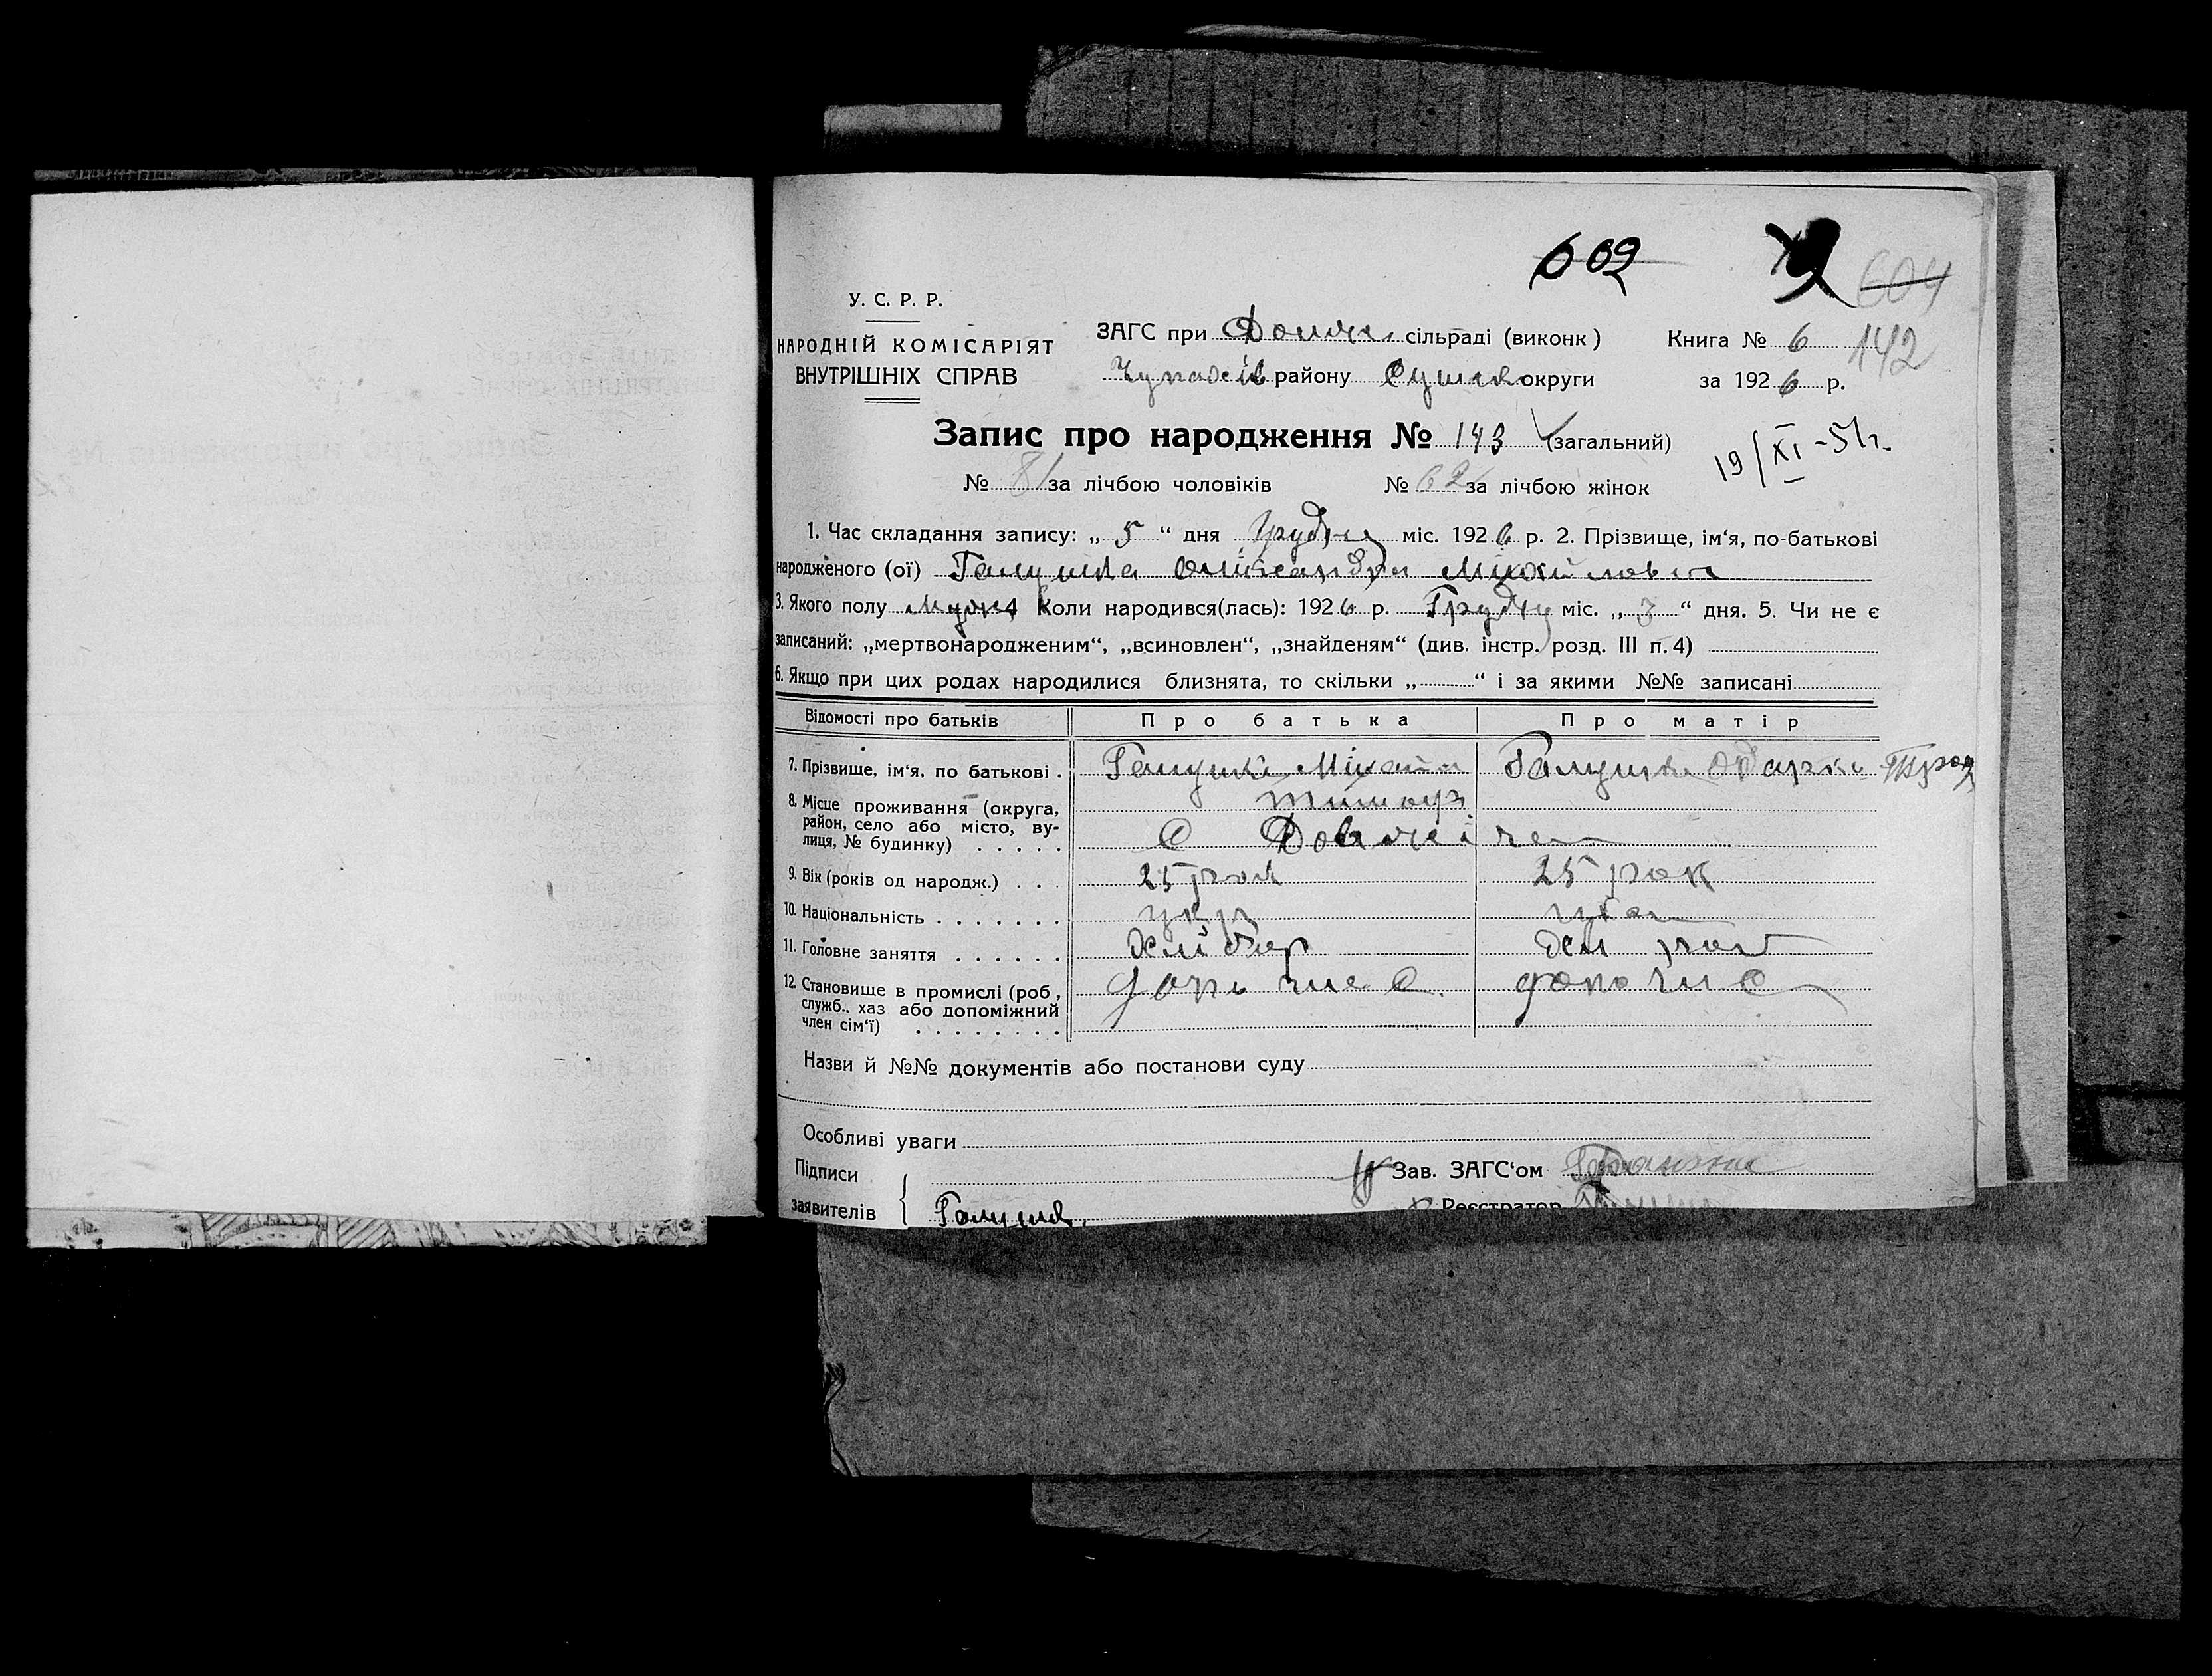 602
604
У. С. Р. Р.
НАРОДНІЙ КОМІСАРІЯТ
ВНУТРІШНІХ СПРАВ
ЗАГС при сільраді (виконк)
Чупахів району Сумск округи
Книга № 6 142
за 1926 р.
Запис про народження № 143 (загальний)
19/XI-51г.
№ 81 за лічбою чоловіків № 62 за лічбою жінок
1. Час складання запису: „ 5 “ дня Грудня міс. 1926 р. 2. Прізвище, ім‘я, по-батькові
народженого (ої) Галушка Олександр Михайлович
3. Якого полу 4 Коли народився(лась): 1926 р. Грудня міс. „ 3 “ дня. 5. Чи не є
записаний: „мертвонародженим“, „всиновлен“, „знайденям“ (див. інстр. розд. III п. 4)
6. Якщо при цих родах народилися близнята, то скільки „ “ і за якими №№ записані
Відомості про батьків Про батька Про матір
7. Прізвище, ім‘я, по батькові . Галушка Михайло Галушка Одарка
8. Місце проживання (округа,
район, село або місто, ву-
лиця, № будинку) . . . . . С
9. Вік (років од народж.) . . . 25 рок 25 рок
10. Національність . . . . . . . укр
11. Головне заняття . . . . . . Хлібор
12. Становище в промислі (роб,
служб.. хаз або допоміжний
член сім‘ї) . . . . . . . .
Назви й №№ документів або постанови суду
Особливі уваги
Підписи
заявителів Галушка
Зав. ЗАГС‘ом
Реєстратор